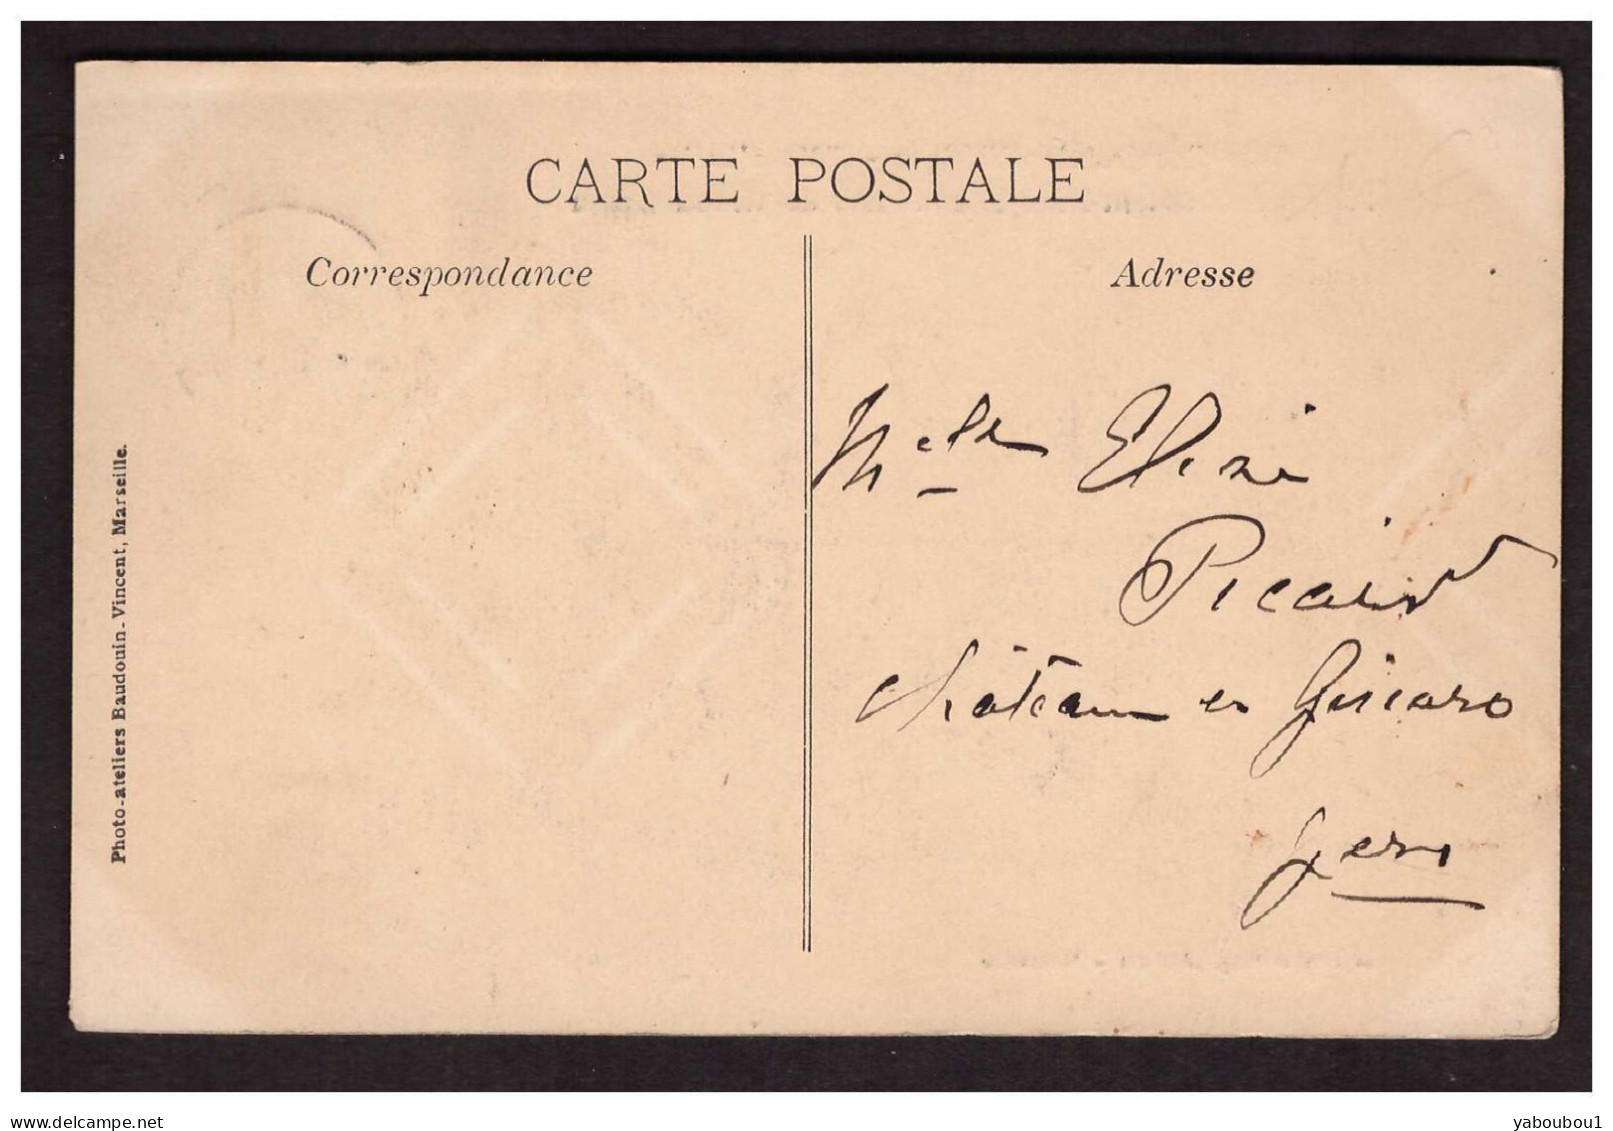 CARTE POSTALE
Correspondance
Adresse
Mlle Elise
Picard
château en
Gers
Photo-ateliers Baudouin-Vincent, Marseille.
delcampe.net
yaboubou1